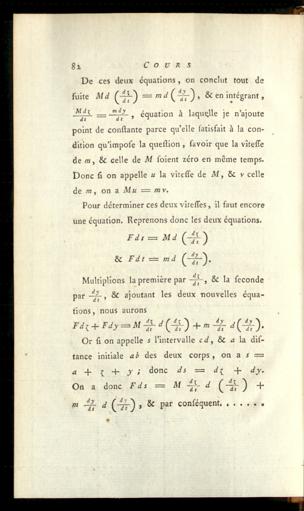 82 COURS
De ces deux équations, on conclut tout de
suite M d (dz/dt) = m d (dy/dt), & en intégrant,
M dz/dt = m dy/dt, équation à laquelle je n'ajoute
point de constante parce qu'elle satisfait à la con-
dition qu'impose la question, savoir que la vitesse
de m, & celle de M soient zéro en même temps.
Donc si on appelle u la vitesse de M, & v celle
de m, on a M u = m v.
Pour déterminer ces deux vitesses, il faut encore
une équation. Reprenons donc les deux équations.
F d s = M d (dz/dt)
& F d t = m d (dy/dt).
Multiplions la première par dz/dt, & la seconde
par dy/dt, & ajoutant les deux nouvelles équa-
tions, nous aurons
F d z + F d y = M dz/dt d (dz/dt) + m dy/dt d (dy/dt).
Or si on appelle s l'intervalle c d, & a la dis-
tance initiale a b des deux corps, on a s =
a + z + y ; donc ds = dz + dy.
On a donc F d s = M dz/dt d (dz/dt) +
m dy/dt d (dy/dt), & par conséquent. . . . . . .